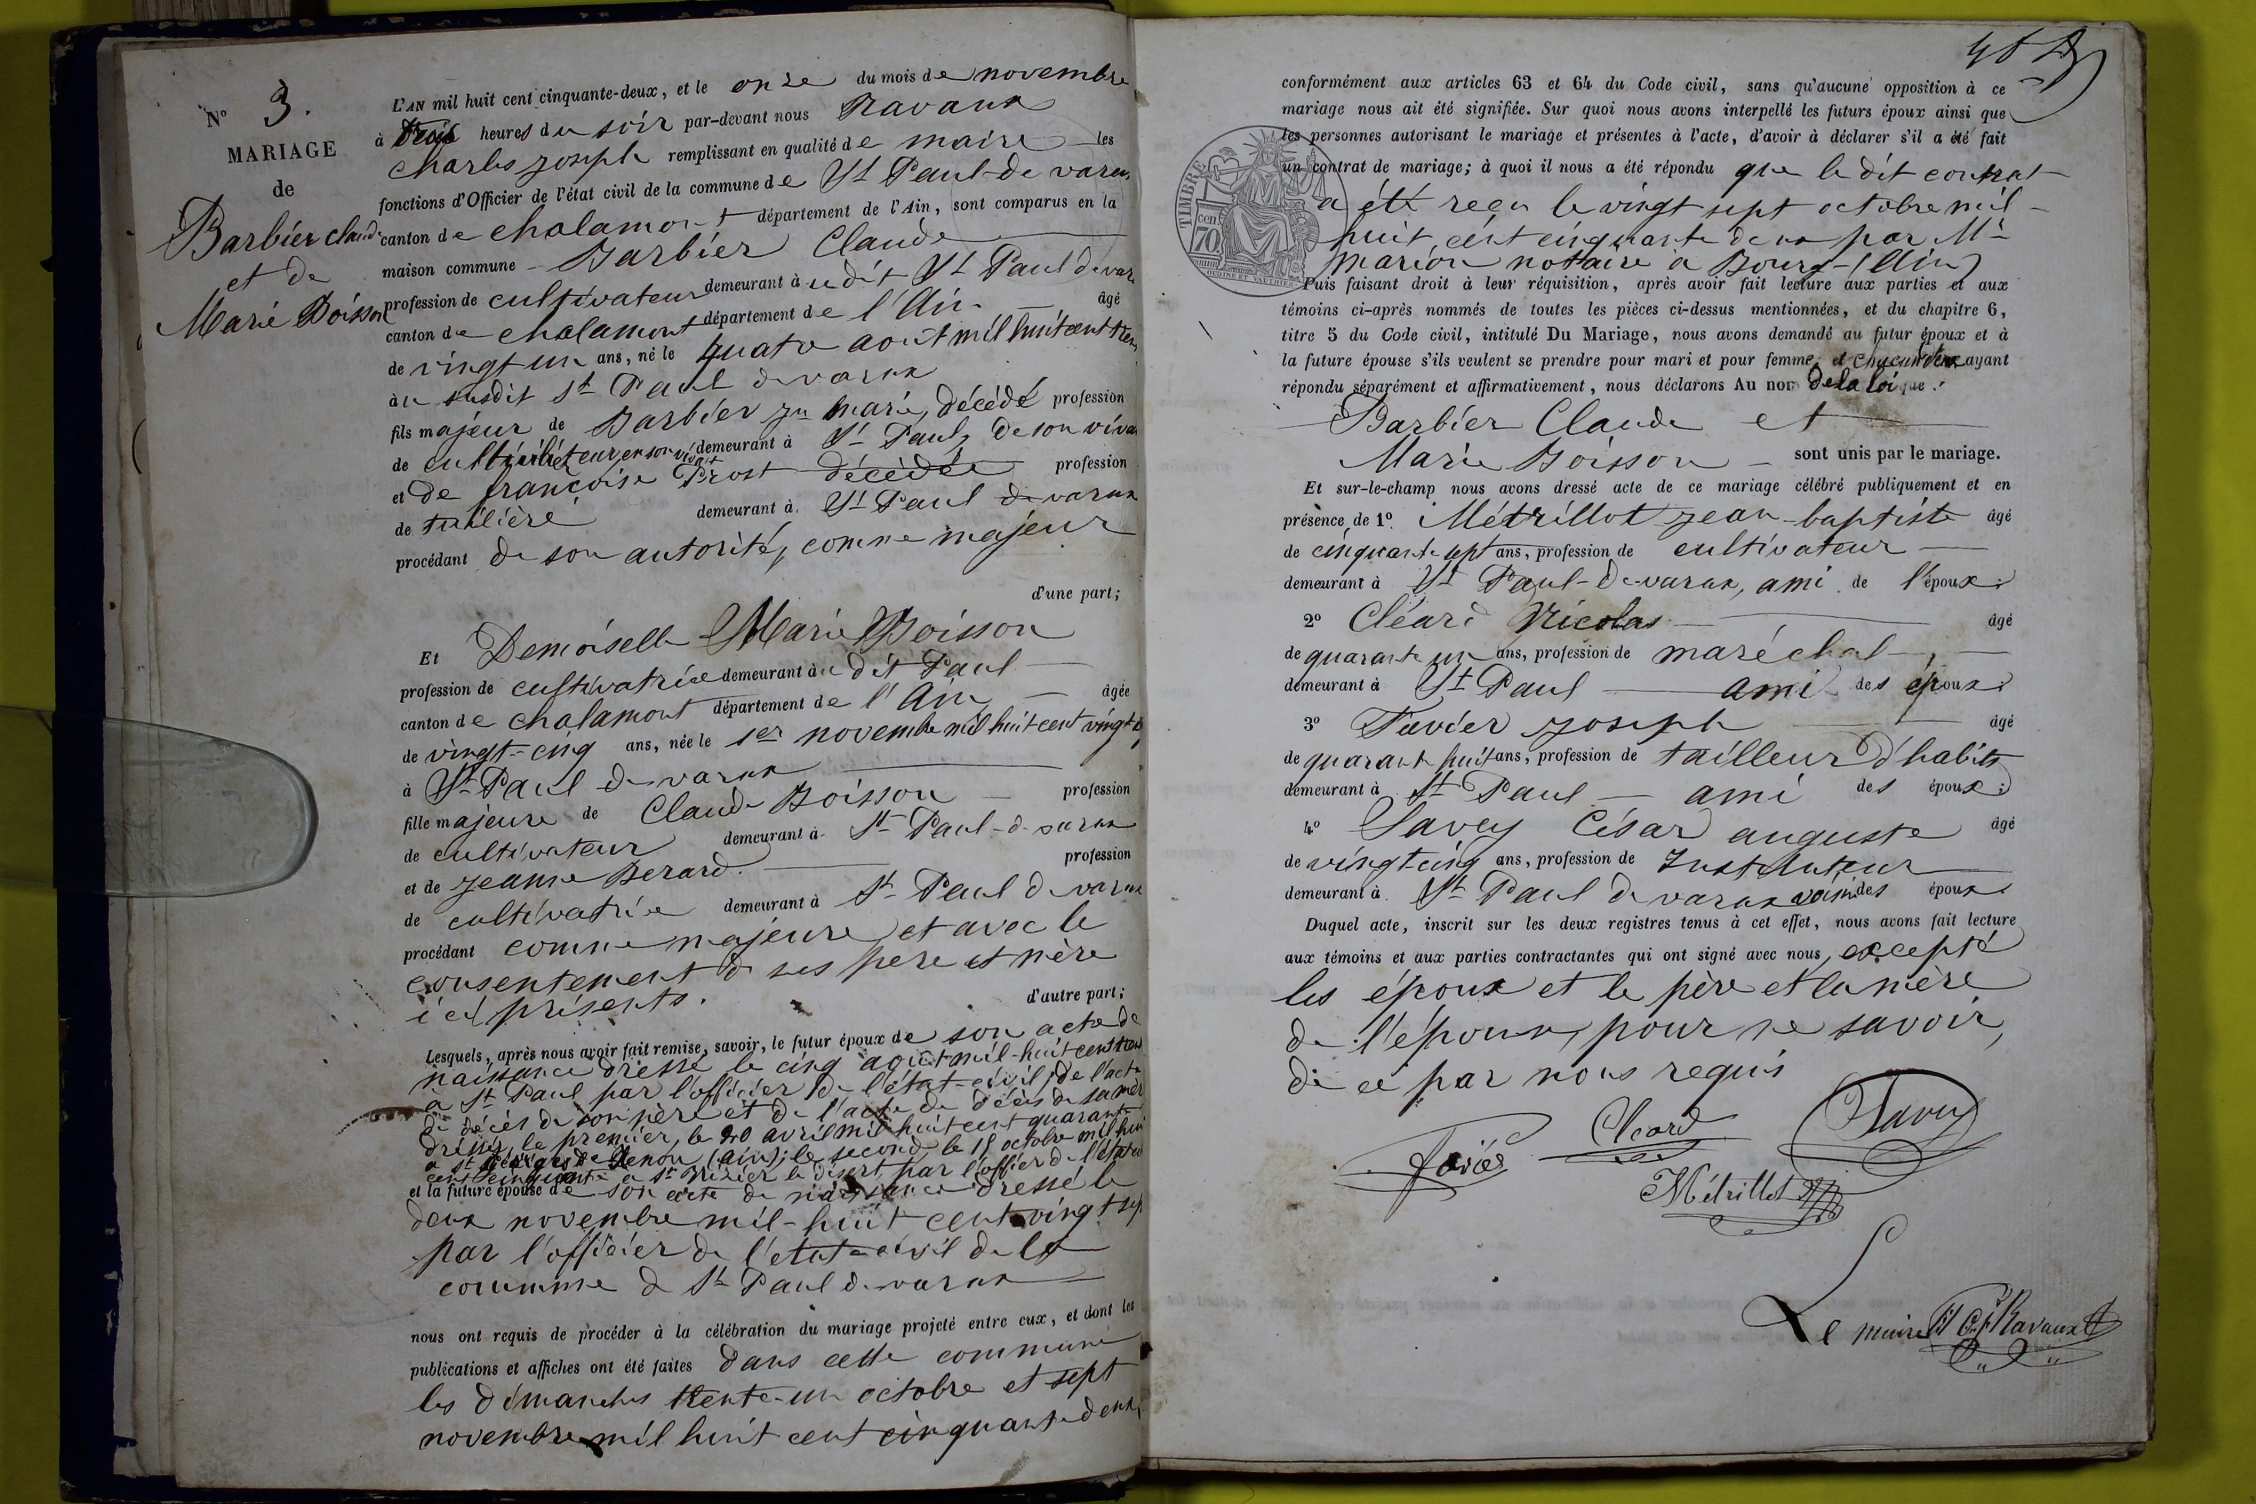 N° 3.
MARIAGE
de
Barbier claude
et de
Marie Boisson
L'AN mil huit cent cinquante-deux, et le onze du mois de novembre
à trois heures du soir par-devant nous Ravaux
Charles joseph remplissant en qualité de maire les
fonctions d'Officier de l'état civil de la commune de St Paul-de varax
canton de chalamont département de l'Ain, sont comparus en la
maison commune Barbier Claude
profession de cultivateur demeurant à udit St Paul de varax
canton de chalamont département de l'Ain âgé
de vingt un ans, né le quatre août mil huit cent trente
àu susdit St Paul de varax
fils majeur de Barbier jn marie, décédé profession
de cultivateur en son vivant demeurant à St Paul, de son vivant
et de françoise Prost décédée profession
de tuilière demeurant à St Paul de varax
procédant de son autorité, comme majeur
d'une part;
Et Demoiselle Marie Boisson
profession de cultivatrice demeurant àu dit Paul
canton de chalamont département de l'Ain âgée
de vingt-cinq ans, née le 1er novembre mil huit cent vingt
à St Paul de varax
fille majeure de Claude Boisson profession
de cultivateur demeurant à St Paul-de varax
et de jeanne Berard. profession
de cultivatrice demeurant à St Paul de varax
procédant comme majeure, et avec le
consentement de ses père et mère
ici présents.
d'autre part;
Lesquels, après nous avoir fait remise, savoir, le futur époux de son acte de
naissance dressé le cinq août mil-huit cent trente
a St Paul par l'officier de l'état-civil, de l'acte
de décès de son père et de l'acte de décès de sa mère
dressés, le premier, le avril mil huit cent quarante
a St de Renon (ain); le second, le 15 octobre mil huit
cent cinquante a St Nizier le désert, par l'officier de l'état
et la future épouse de son acte de naissance dressé le
deux novembre mil-huit cent vingt sept
par l'officier de l'état-civil de la
commune de St Paul de varax
nous ont requis de procéder à la célébration du mariage projeté entre eux, et dont les
publications et affiches ont été faites dans cette commune
les dimanches trente-un octobre et sept
novembre mil huit cent cinquante deux,
conformément aux articles 63 et 64 du Code civil, sans qu'aucune opposition à ce
mariage nous ait été signifiée. Sur quoi nous avons interpellé les futurs époux ainsi que
les personnes autorisant le mariage et présentes à l'acte, d'avoir à déclarer s'il a été fait
un contrat de mariage; à quoi il nous a été répondu que le dit contrat
a été reçu le vingt sept octobre mil
huit cent cinquante deux par Me
marion notaire a Bourg-(Ain)
Puis faisant droit à leur réquisition, après avoir fait lecture aux parties et aux
témoins ci-après nommés de toutes les pièces ci-dessus mentionnées, et du chapitre 6,
titre 5 du Code civil, intitulé Du Mariage, nous avons demandé au futur époux et à
la future épouse s'ils veulent se prendre pour mari et pour femme; et chacun d'eux ayant
répondu séparément et affirmativement, nous déclarons Au nom de la loi que
Barbier Claude et
Marie Boisson sont unis par le mariage.
Et sur-le-champ nous avons dressé acte de ce mariage célébré publiquement et en
présence de 1° Métrillot jean-baptiste âgé
de cinquante sept ans, profession de cultivateur
demeurant à St Paul-de-varax, ami de l'époux;
2° Cléard Nicolas âgé
de quarante un ans, profession de maréchal
demeurant à St Paul ami des époux;
3° Favier joseph âgé
de quarante huit ans, profession de tailleur d'habits
demeurant à St Paul ami des époux;
4° Savey César auguste âgé
de vingt cinq ans, profession de Instituteur
demeurant à St Paul de varax voisin des époux
Duquel acte, inscrit sur les deux registres tenus à cet effet, nous avons fait lecture
aux témoins et aux parties contractantes qui ont signé avec nous, excepté
les époux et le père et la mère
de l'épouse, pour ne savoir,
de ce par nous requis
Cleard Savey
Favier
Métrillot
Le maire Ravaux
TIMBRE
cen
70